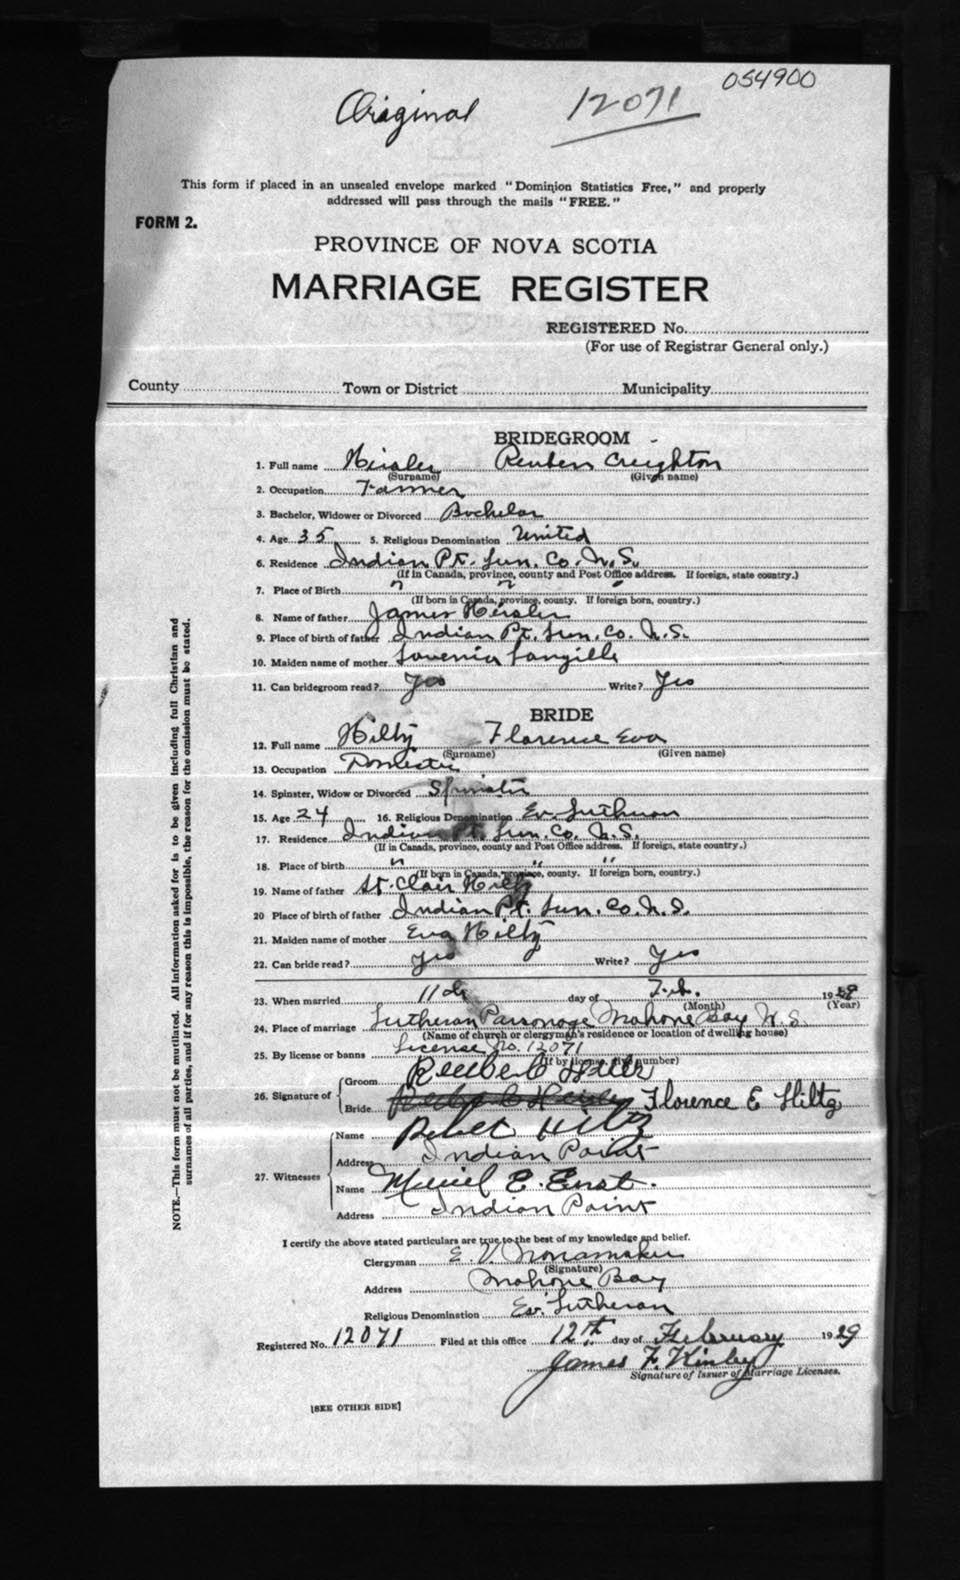 054900
Original 12071
This form if placed in an unsealed envelope marked "Dominion Statistics Free," and properly
addressed will pass through the mails "FREE."
FORM 2.
PROVINCE OF NOVA SCOTIA
MARRIAGE REGISTER
REGISTERED No.
(For use of Registrar General only.)
County Town or District Municipality
BRIDEGROOM
1. Full name Heisler Reuben Creighton
(Surname) (Given name)
2. Occupation Farmer
3. Bachelor, Widower or Divorced Bachelor
4. Age 35 5. Religious Denomination United
6. Residence Indian Pt. Lun. Co. N.S.
(If in Canada, province, county and Post Office address. If foreign, state country.)
7. Place of Birth " " "
(If born in Canada, province, county. If foreign born, country.)
8. Name of father James Heisler
9. Place of birth of father Indian Pt. Lun. Co. N.S.
10. Maiden name of mother Lavenia Langille
11. Can bridegroom read? Yes Write? Yes
BRIDE
12. Full name Hiltz Florence Eva
(Surname) (Given name)
13. Occupation Domestic
14. Spinster, Widow or Divorced Spinster
15. Age 24 16. Religious Denomination Ev. Lutheran
17. Residence Indian Pt. Lun. Co. N.S.
(If in Canada, province, county and Post Office address. If foreign, state country.)
18. Place of birth " " "
(If born in Canada, province, county. If foreign born, country.)
19. Name of father St. Clair Hiltz
20 Place of birth of father Indian Pt. Lun. Co. N.S.
21. Maiden name of mother Eva Hiltz
22. Can bride read? Yes Write? Yes
23. When married 11th day of Feb. 19
(Month) (Year)
24. Place of marriage Lutheran Parsonage Mahone Bay N.S.
(Name of church or clergyman's residence or location of dwelling house)
25. By license or banns License No. 12071
(If by license, give number)
26. Signature of
Groom
Bride Florence E Hiltz
27. Witnesses
Name Hiltz
Address Indian Point
Name Muriel E. Ernst.
Address Indian Point
I certify the above stated particulars are true to the best of my knowledge and belief.
Clergyman E. V. Nonamaker
(Signature)
Address Mahone Bay
Religious Denomination Ev. Lutheran
Registered No. 12071 Filed at this office 12th day of February 1929
James F. Kinley
Signature of Issuer of Marriage Licenses.
[SEE OTHER SIDE]
NOTE.—This form must not be mutilated. All information asked for is to be given including full Christian and
surnames of all parties, and if for any reason this is impossible, the reason for the omission must be stated.